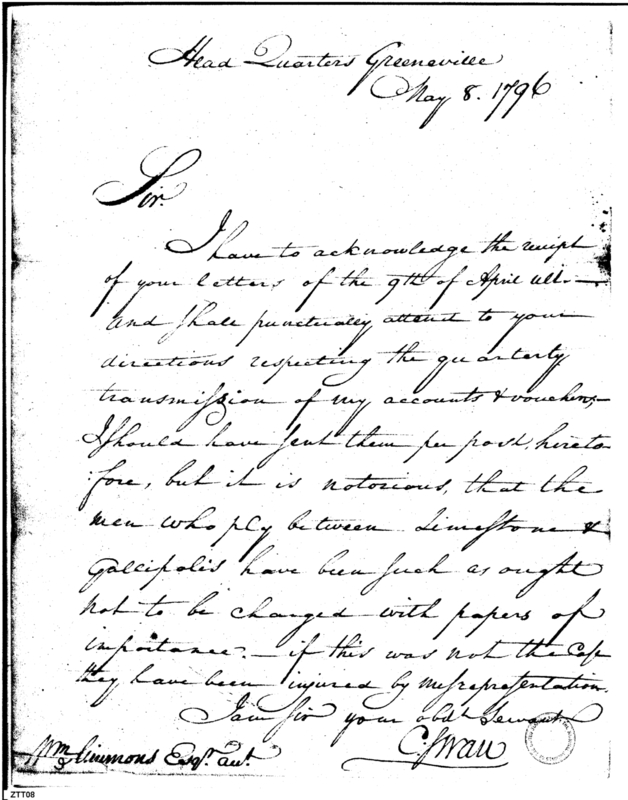 Head Quarters Greeneville
May 8. 1796
Sir.
I have to acknowledge the receipt
of your letters of the 9th of April ult. —
and shall punctually attend to your
directions respecting the quarterly
transmission of my accounts & vouchers, —
I should have sent them per post, hereto
fore, but it is notorious, that the
men who ply between Limestone &
Gallipolis have been such as ought
not to be charged with papers of
importance. — if this was not the Case
they have been injured by misrepresentation.
I am Sir your obdt. Servant
C: Swan
Wm Simmons Esqr. acct.
ZTT08